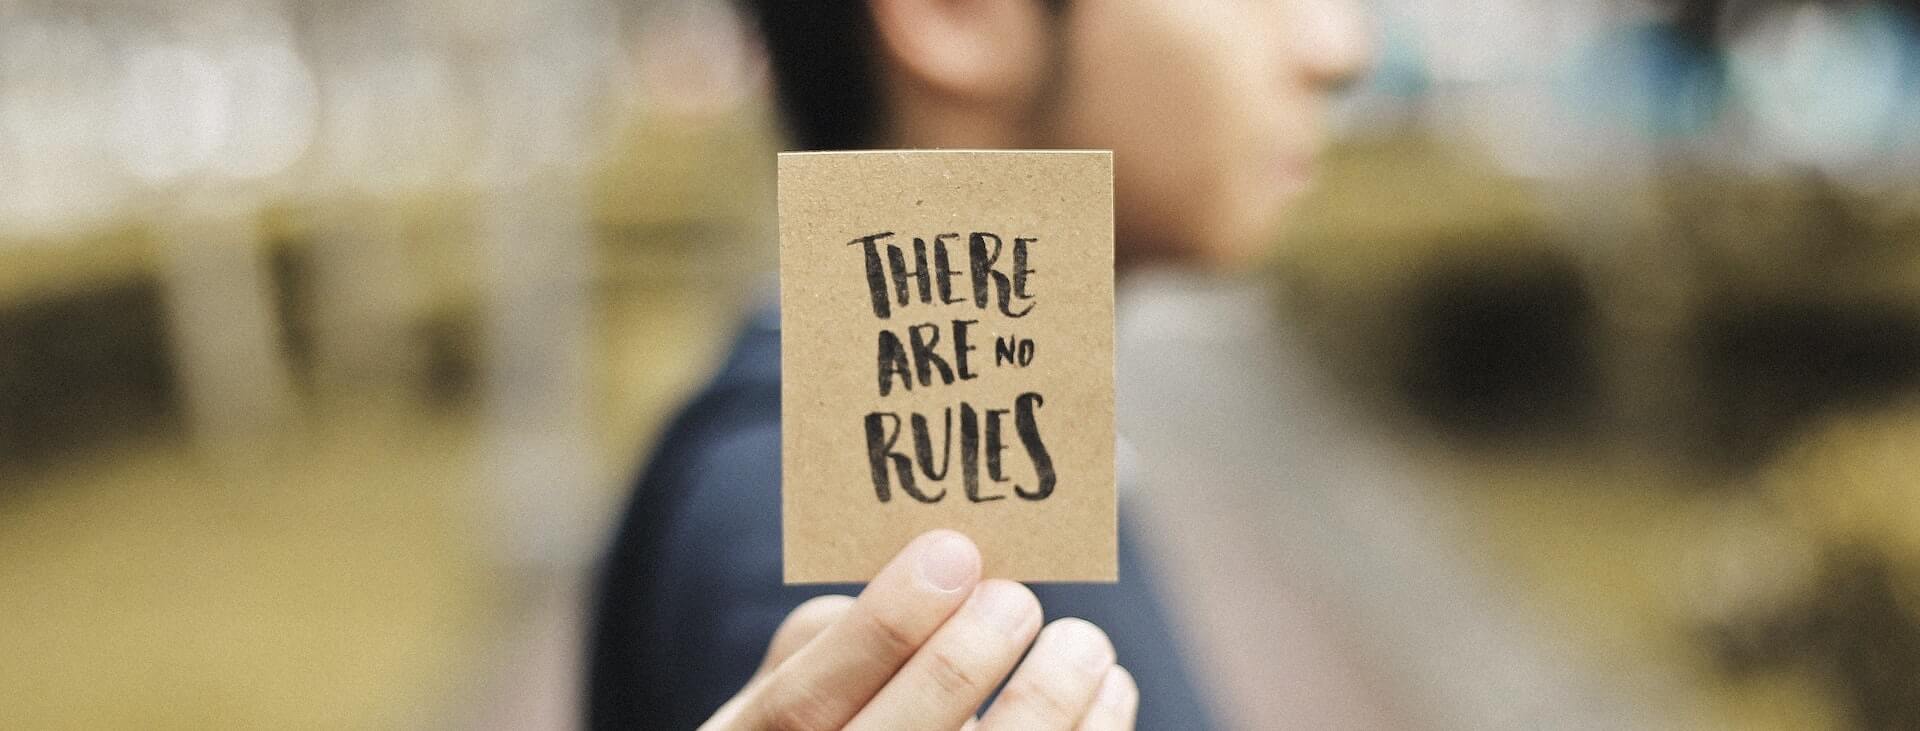 THERE
ARE NO
RULES